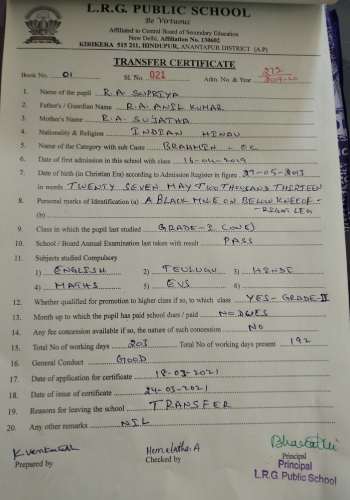 L.R.G. PUBLIC SCHOOL
Be Virtuous
Affiliated to Central Board of Secondary Education
New Delhi, Affiliation No. 130602
KIRIKERA 515 211, HINDUPUR, ANANTAPUR DISTRICT (A.P)
TRANSFER CERTIFICATE
Book No. 01 Sl. No. 021 Adm. No. & Year 272 2019-20
1. Name of the pupil R.A. SUPRIYA
2. Father's / Guardian Name R.A. ANIL KUMAR
3. Mother's Name R.A. SUJATHA
4. Nationality & Religion INDIAN HINDU
5. Name of the Category with sub Caste BRAHMIN - OC
6. Date of first admission in this school with class 16-04-2019
7. Date of birth (in Christian Era) according to Admission Register in figure 27-05-2013
in words TWENTY SEVEN MAY TWO THOUSAND THIRTEEN
8. Personal marks of Identification (a) A BLACK MOLE ON BELOW KNEE OF
(b) - RIGHT LEG
9. Class in which the pupil last studied GRADE-I (ONE)
10. School / Board Annual Examination last taken with result PASS
11. Subjects studied Compulsory
1) ENGLISH 2) TELUGU 3) HINDI
4) MATHS 5) EVS 6)
12. Whether qualified for promotion to higher class if so, to which class YES - GRADE-II
13. Month up to which the pupil has paid school dues / paid NO DUES
14. Any fee concession available if so, the nature of such concession NO
15. Total No of working days 203 Total No of working days present 192
16. General Conduct GOOD
17. Date of application for certificate 18-03-2021
18. Date of issue of certificate 24-03-2021
19. Reasons for leaving the school TRANSFER
20. Any other remarks NIL
K. Venkatesh Hemalatha. A Bharathi
Prepared by Checked by Principal
Principal
L.R.G. Public School